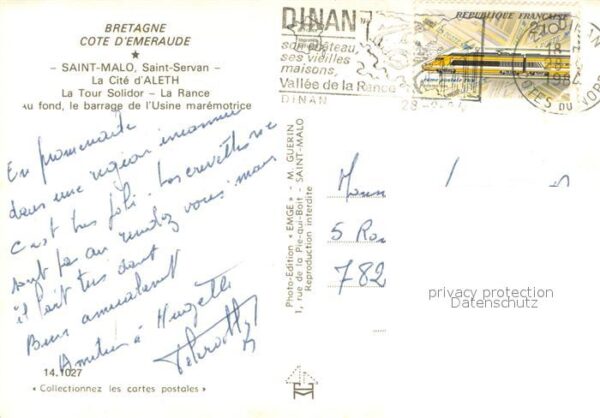 BRETAGNE
COTE D'EMERAUDE
- SAINT-MALO, Saint-Servan -
La Cité d'ALETH
La Tour Solidor - La Rance
Au fond, le barrage de l'Usine marémotrice
DINAN
son château,
ses vieilles
maisons,
Vallée de la Rance
DINAN
REPUBLIQUE FRANÇAISE
2,10
18
28
COTES DU NORD
En promenade
dans une région inconnue
c'est très joli. Les crevettes ne
sont pas au rendez vous mais
il fait très
Amitiés à
Photo-Edition « EMGE » - M. GUERIN
1, rue de la Pie-qui-Boit - SAINT-MALO
Reproduction interdite
5
782
privacy protection
Datenschutz
14.1027
« Collectionnez les cartes postales »